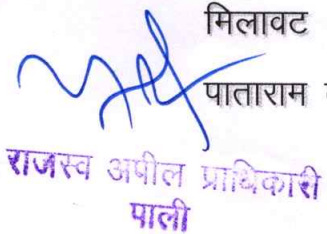 मिलावट
पाताराम
राजस्व अपील प्राधिकारी
पाली